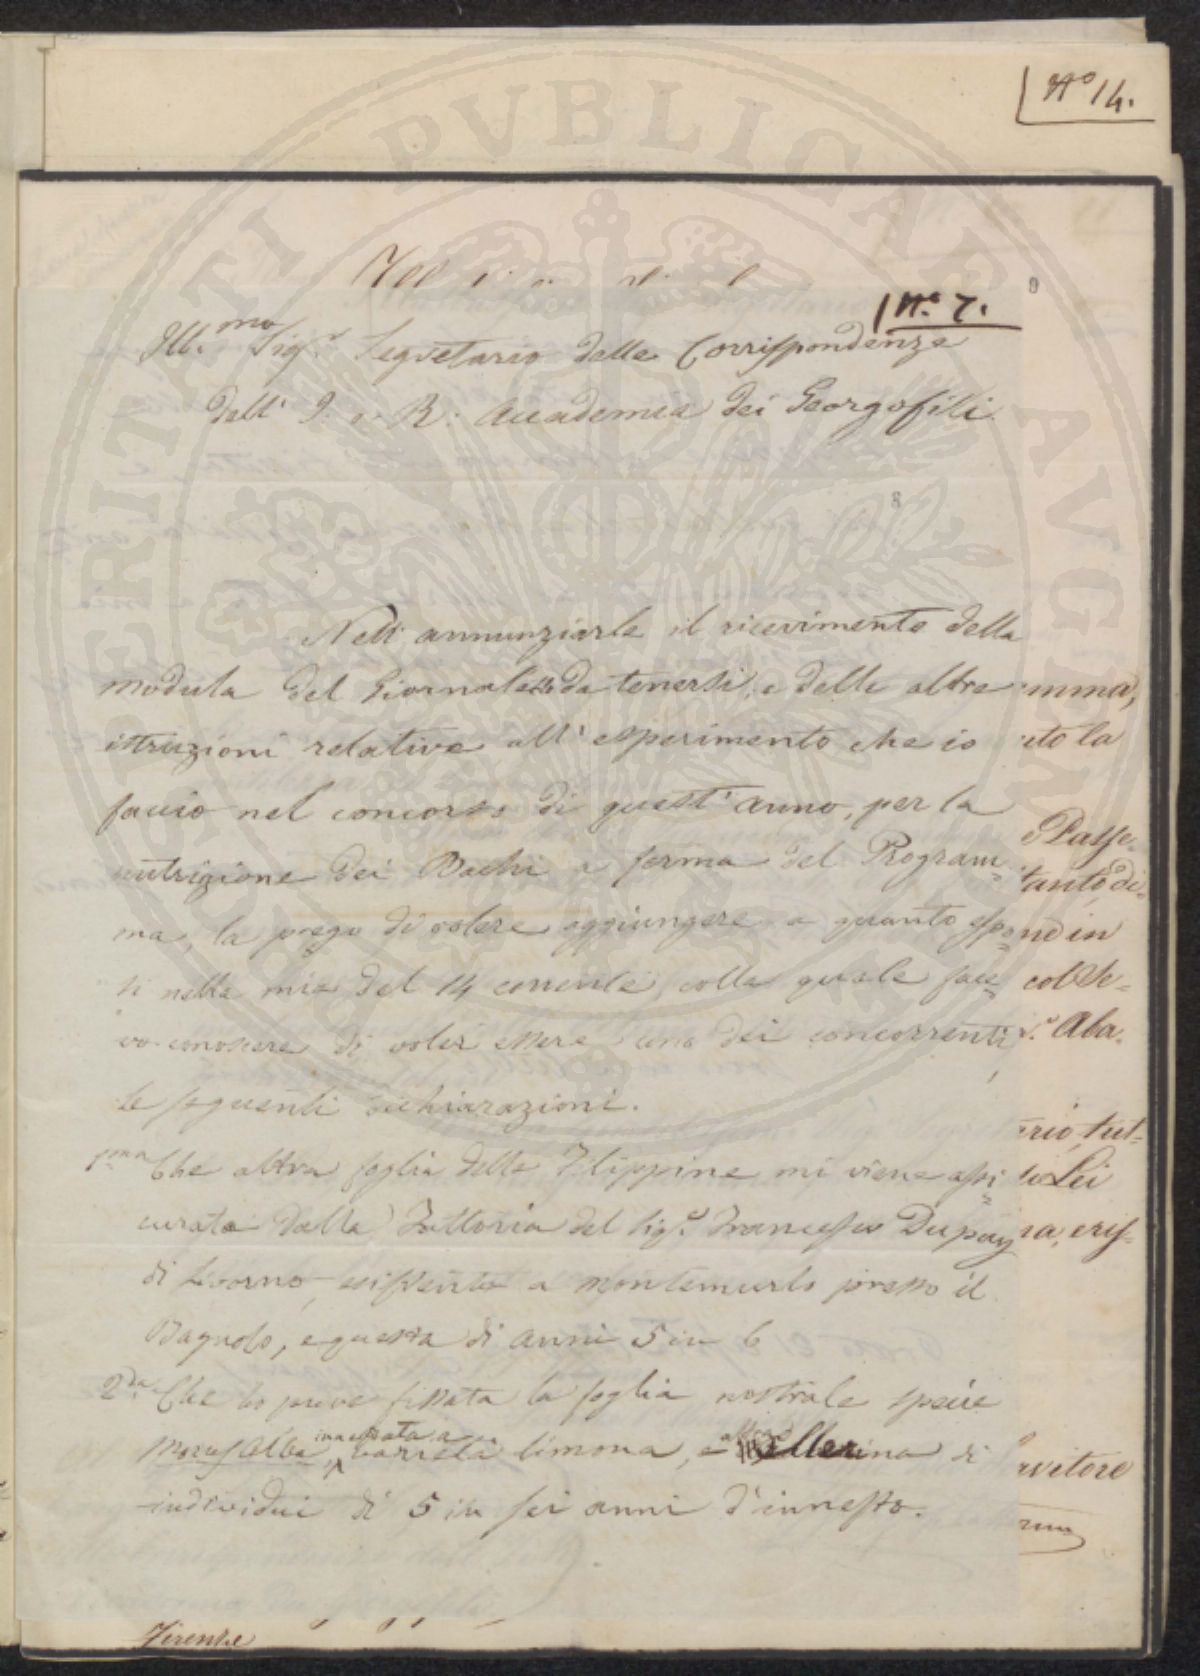 N.o 14.
9
N.o 7.
Ill.mo Sig.r Segretario delle Corrispondenze
dell' I. e R. Accademia dei Georgofili
8
Nell' annunziarle il ricevimento della
modula del Giornale da tenersi, e delle altre
istruzioni relative all' esperimento che io
faccio nel concorso di quest' anno, per la
nutrizione dei Bachi a forma del Program=
ma, la prego di volere aggiungere a quanto espo=
si nella mia del 14 corrente, colla quale face=
vo conoscere di voler essere uno dei concorrenti,
le seguenti dichiarazioni.
1.ma Che altra foglia delle Filippine mi viene assi=
curata dalla Fattoria del Sig.r Francesco Dupouy
di Livorno, esistente a Montemurlo presso il
Bagnolo, e questa di anni 5 in 6
2.da Che la prova fissata la foglia nostrale specie
Morus Alba, innestata a varietà limona, e di
individui di 5 in sei anni d'innesto.
Firenze
mma,
uto la
tanto, di=
ne in
col Se=
Aba=
rio, tut=
Lei
na, eris=
rvitore
PERITATI PVBLICAE AVGENDAE